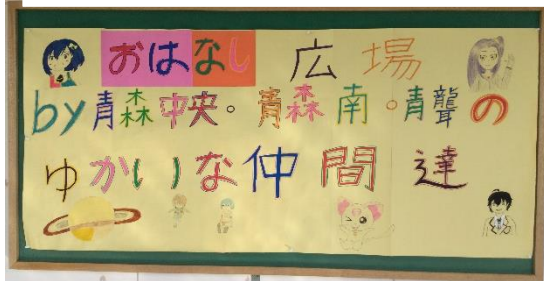 おはなし広場
by青森中央。青森南。青聾の
ゆかいな仲間達